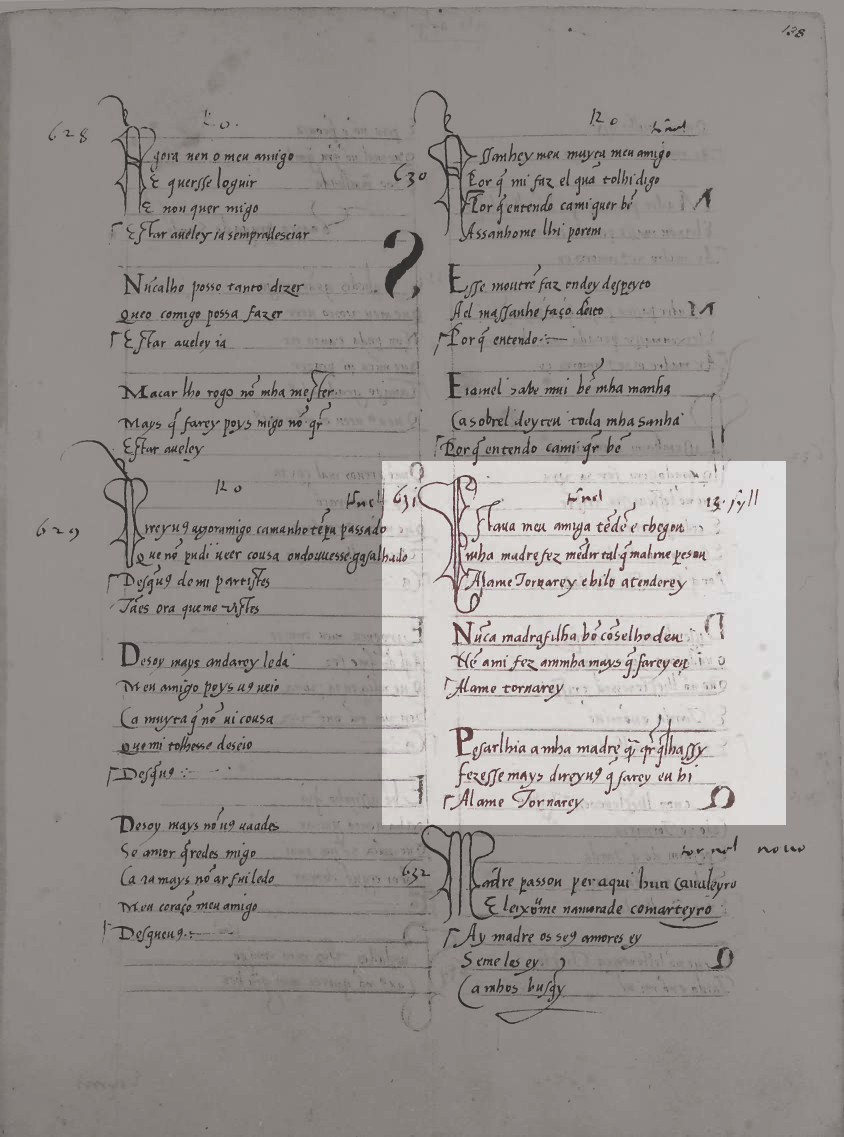 128
628
Agora uen o meu amigo
E quersse loguir
E non quer migo
Estar aueley ia sempradesciar
Nũcalho posso tanto dizer
Queo comigo possa fazer
Estar aueley ia
Macar lho rogo nõ mha mester
Mays q̃ farey poys migo nõ q̃r
Estar aueley
629
tornel
Direyuꝯ agoramigo camanho tẽpu passado
Que nõ pudi ueer cousa ondouuesse gasalhado
Desq̃uꝯ de mi partistes
Tães ora queme uistes
Desoy mays andarey leda
Meu amigo poys uꝯ ueio
Ca muyta q̃ nõ ui cousa
Que mi tolhesse deseio
Desq̃uꝯ
Desoy mays nõ uꝯ uaades
Se amor q̃redes migo
Ca ia mays nõ ar fui ledo
Meu coraçõ meu amigo
Desqueuꝯ
630
tornel
Assanhey meu muyta meu amigo
Por q̃ mi faz el quã tolhi digo
Por q̃ entendo cami quer bẽ
Assanhome lhi porem
Esse moutrẽ faz ondey despeyto
Ael massanhe faço dẽito
Por q̃ entendo
Eiamel sabe mui bẽ mha manha
Ca sobrel deyteu toda mha sanha
Por q̃ entendo cami q̃r bẽ
631
tornel
Estaua meu amiga tẽdẽ e chegou
mha madre fez mẽdir tal q̃ malme pesou
Alame Tornarey e hilo atenderey
Nũca madrafilha bõ cõselho deu
Nẽ ami fez ammha mays q̃ farey eu
Alame tornarey
Pesarlhia amha madre quẽ q̃r q̃lhassy
fezesse mays direyuꝯ q̃ farey eu hi
Alame Tornarey
632
tornel nouo
Madre passou per aqui hun caualeyro
E leixoume namorade comarteyro
Ay madre os seꝯ amores ey
Seme los ey
Ca mhos busq̃y